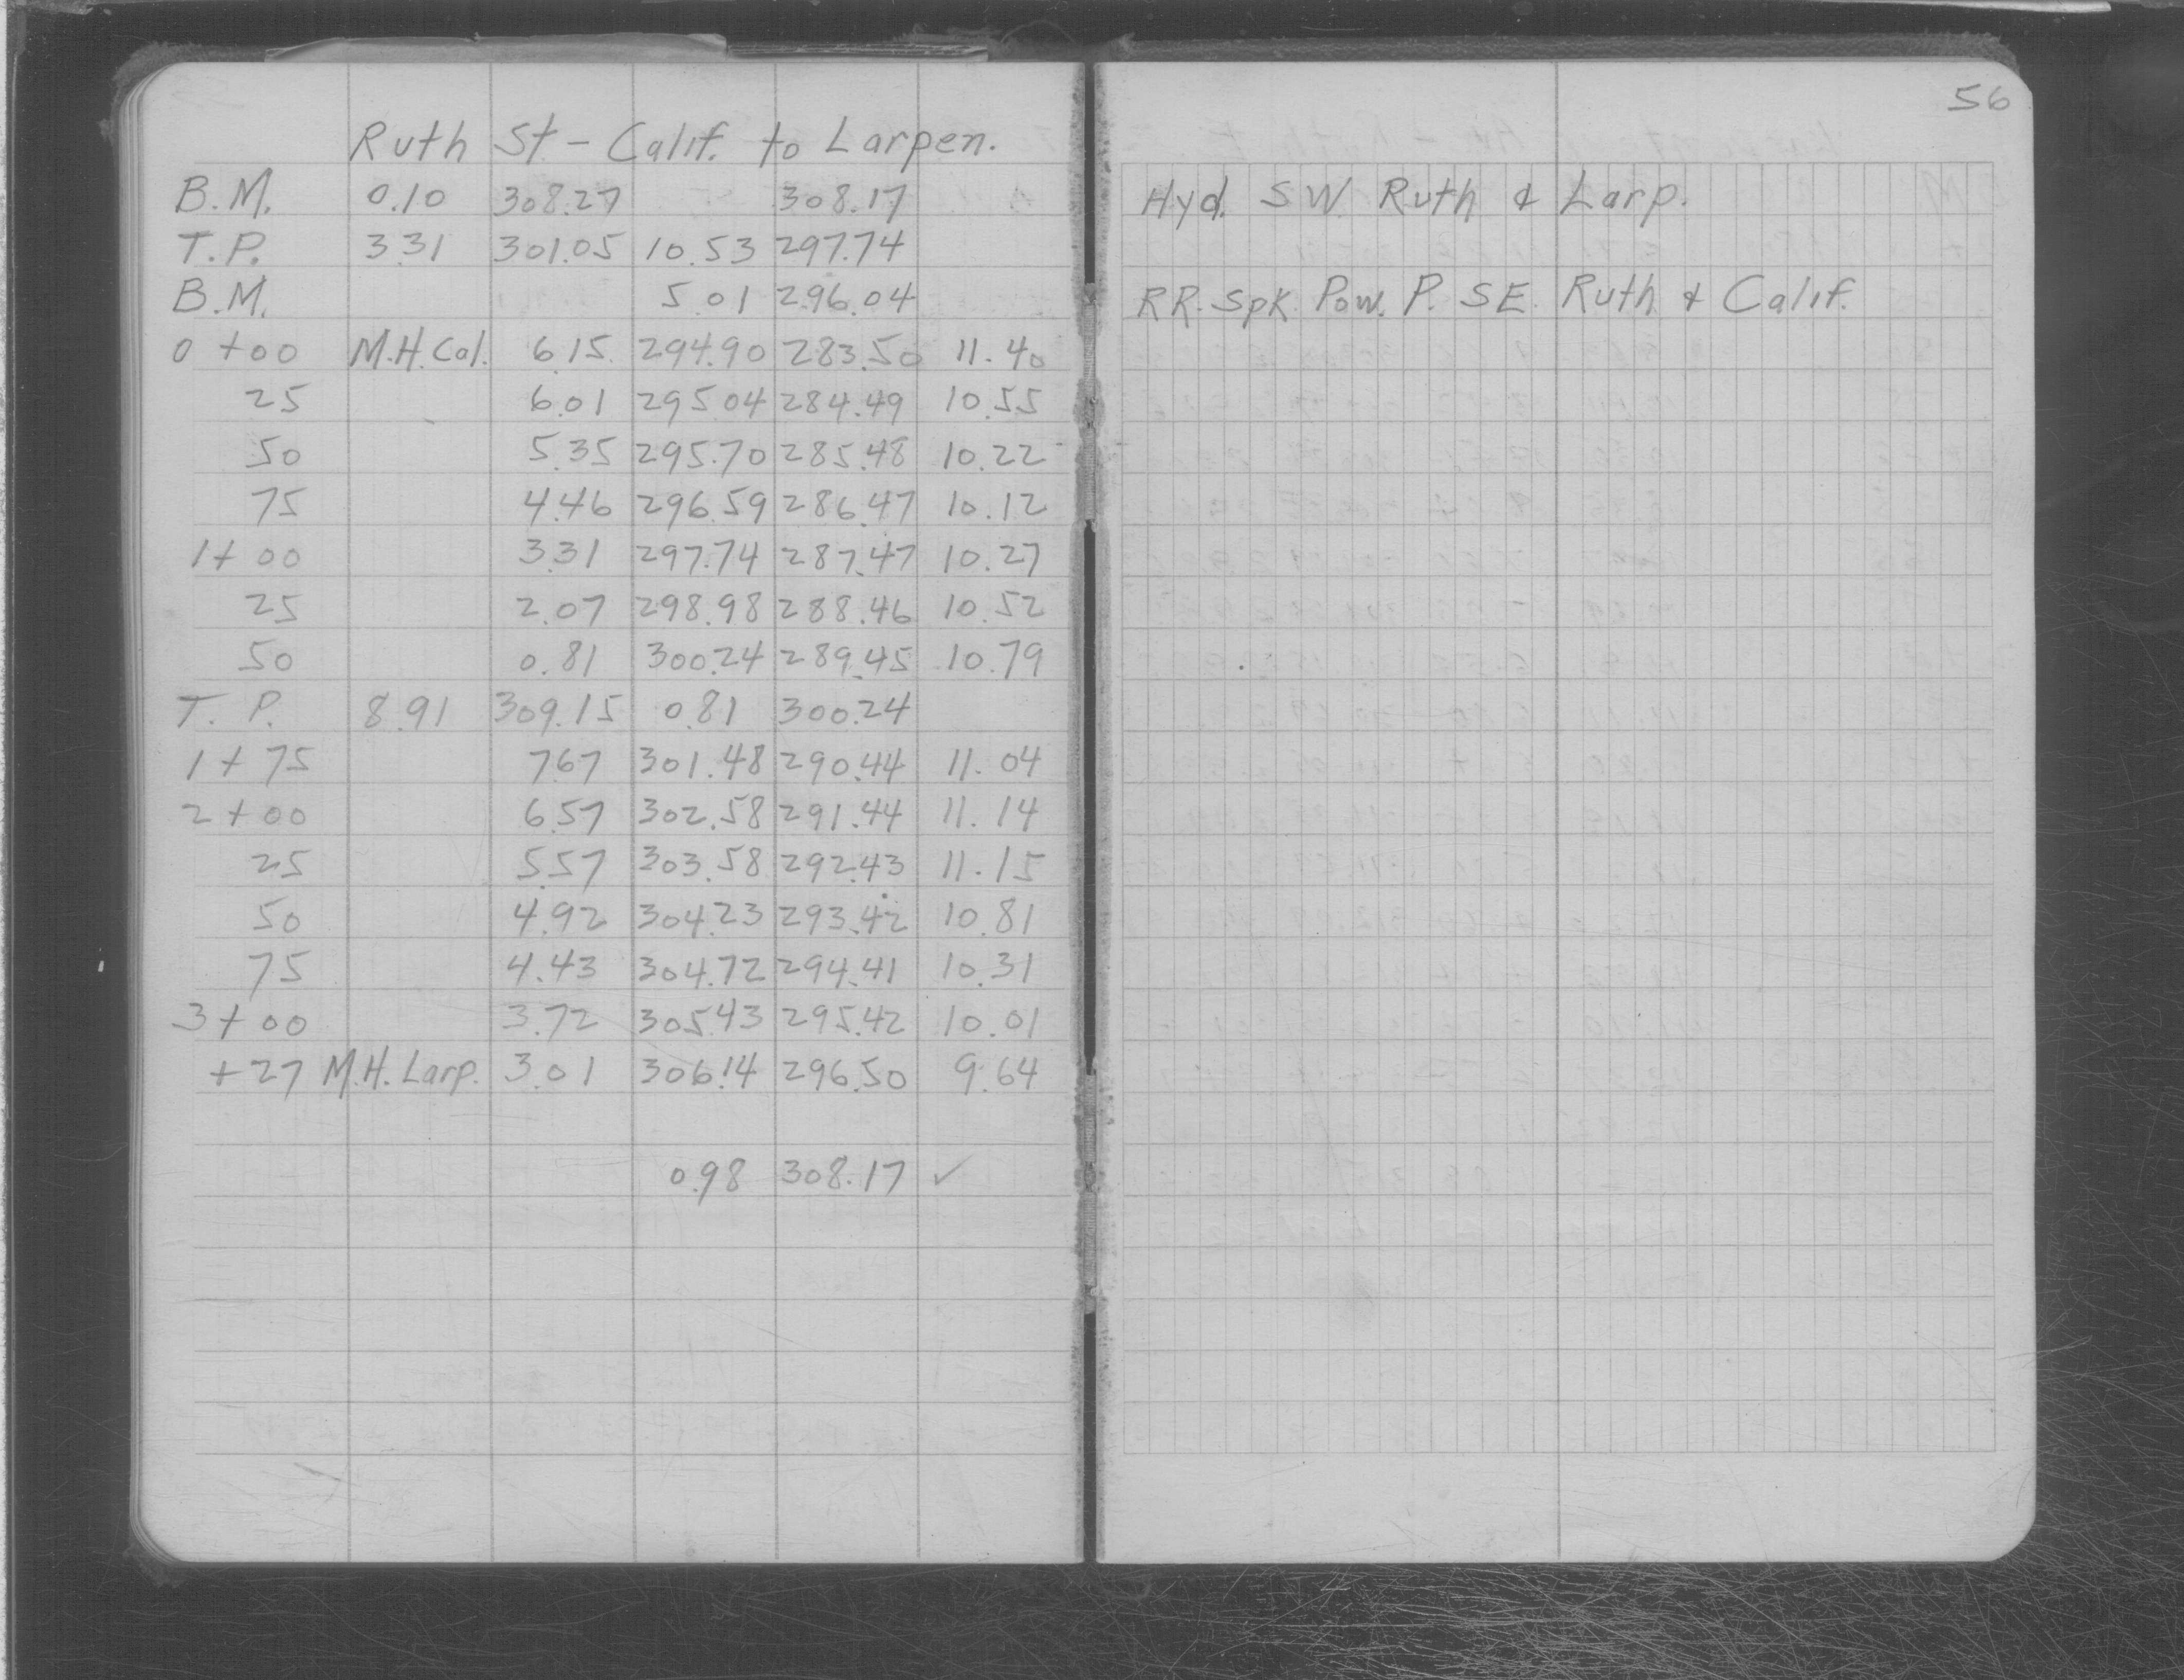 56
Ruth St - Calif. to Larpen.
B.M. 0.10 308.27 308.17 Hyd. SW Ruth & Larp.
T.P. 3.31 301.05 10.53 297.74
B.M. 5.01 296.04 RR. Spk. Pow. P. SE. Ruth & Calif.
0 +00 M.H. Cal. 6.15 294.90 283.50 11.40
25 6.01 295.04 284.49 10.55
50 5.35 295.70 285.48 10.22
75 4.46 296.59 286.47 10.12
1+00 3.31 297.74 287.47 10.27
25 2.07 298.98 288.46 10.52
50 0.81 300.24 289.45 10.79
T. P. 8.91 309.15 0.81 300.24
1+75 7.67 301.48 290.44 11.04
2+00 6.57 302.58 291.44 11.14
25 5.57 303.58 292.43 11.15
50 4.92 304.23 293.42 10.81
75 4.43 304.72 294.41 10.31
3+00 3.72 305.43 295.42 10.01
+27 M.H. Larp. 3.01 306.14 296.50 9.64
0.98 308.17 ✓